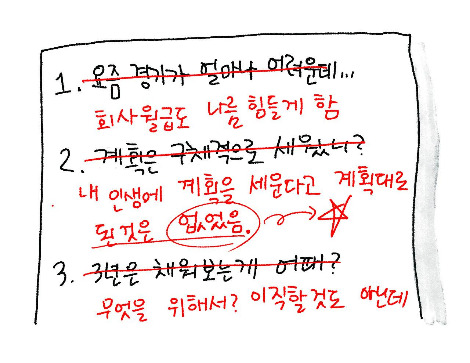 1. 요즘 경기가 얼마나 어려운데...
회사월급도 나름 힘들게 함
2. 계획은 구체적으로 세웠니?
내 인생에 계획을 세운다고 계획대로
된것은 없었음.
3. 3년은 채워보는게 어때?
무엇을 위해서? 이직할것도 아닌데